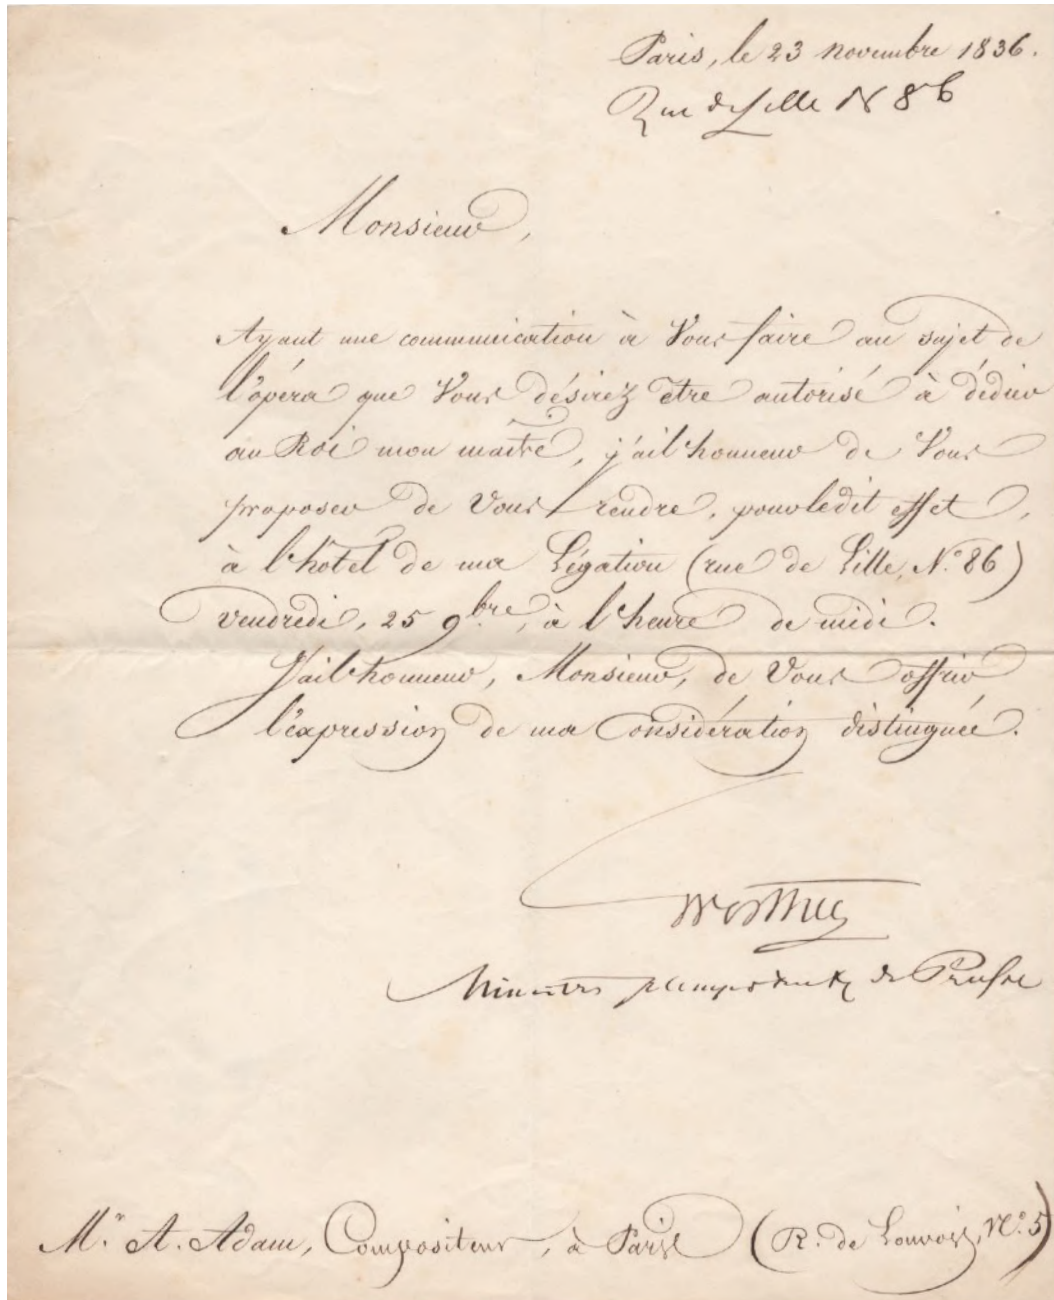 Paris, le 23 novembre 1836.
Rue de Lille N 86
Monsieur,
Ayant une communication à Vous faire au sujet de
l'opéra que Vous désirez être autorisé à dédier
au Roi mon maître, j'ai l'honneur de Vous
proposer de Vous rendre, pour ledit effet,
à l'hôtel de ma Légation (rue de Lille, N.° 86)
vendredi, 25 9.bre, à l'heure de midi.
J'ai l'honneur, Monsieur, de Vous offrir
l'expression de ma Considération distinguée.
Werther
Ministre plénipotentiaire de Prusse
M.r A. Adam, Compositeur, à Paris (R. de Louvois, N.° 5)